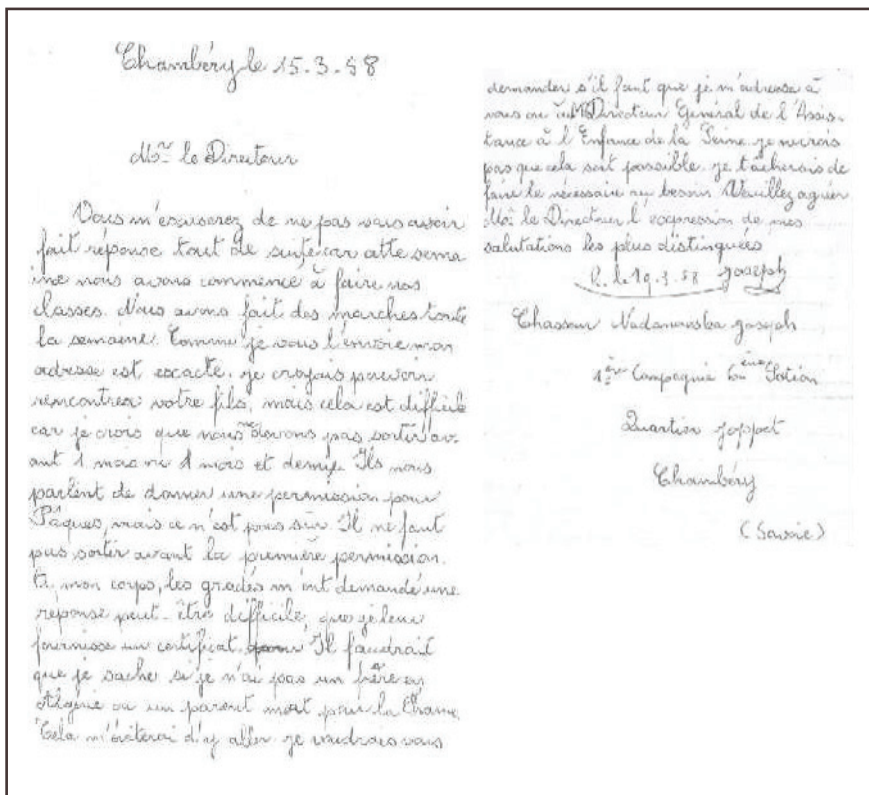 Chambéry le 15.3.58
Mr le Directeur
Vous m'excuserez de ne pas vous avoir
fait réponse tout de suite car cette sema
ine nous avons commencé à faire nos
classes. Nous avons fait des marches toute
la semaine. Comme je vous l'envoie mon
adresse est excacte. je croyais pouvoir
rencontrer votre fils, mais cela est difficile
car je crois que nous ne devons pas sortir av-
ant 1 mois ni 1 mois et demie. Ils nous
parlent de donner une permission pour
Pâques, mais ce n'est pas sûr. Il ne faut
pas sortir avant la première permission.
A mon corps, les gradés m'ont demandé une
réponse peut-être difficile, que je leur
fournisse un certificat. Il faudrait
que je sache si je n'ai pas un frère en
Algérie ou un parent mort pour la France.
Cela m'éviterai d'y aller. je voudrais vous
demander s'il faut que je m'adresse à
vous ou à Mr Directeur Général de l'Assis-
tance à l'Enfance de la Seine. je ne crois
pas que cela soit possible. je tâcherais de
faire le nécessaire au besoin. Veuillez agréer
Mr le Directeur l'expression de mes
salutations les plus distinguées
R. le 19.3.58 Joseph
Chasseur Nadanowska Joseph
1ère Compagnie Section
Quartier Joppet
Chambéry
(Savoie)